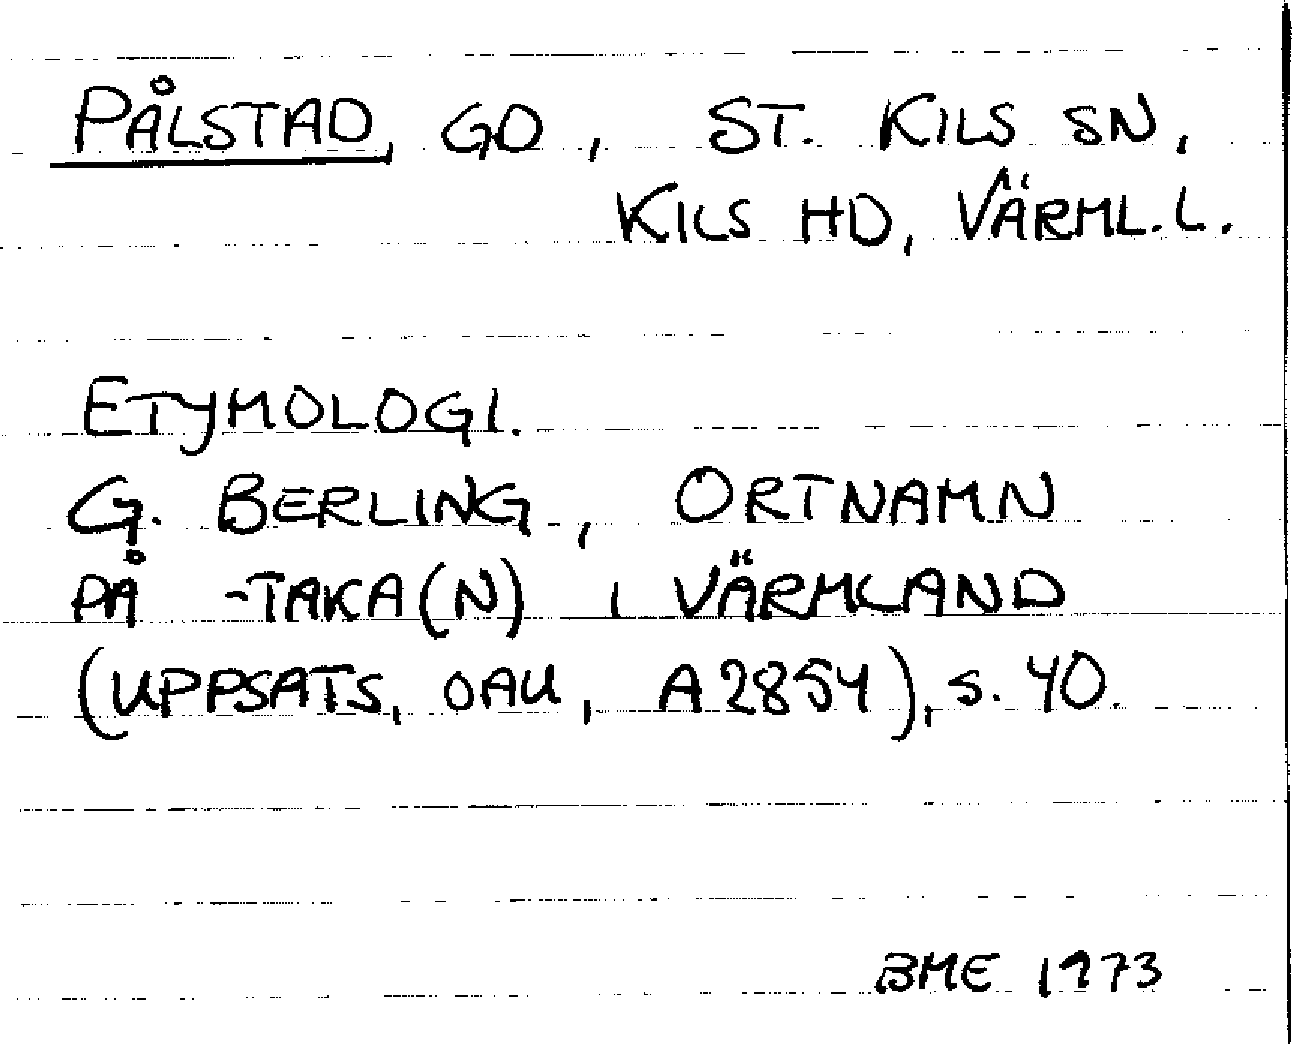 PÅLSTAD, GD, ST. KILS SN,
KILS HD, VÄRML.L.
ETYMOLOGI.
G. BERLING, ORTNAMN
PÅ -TAKA(N) I VÄRMLAND
(UPPSATS, OAU, A2854), s. 40.
BME 1973